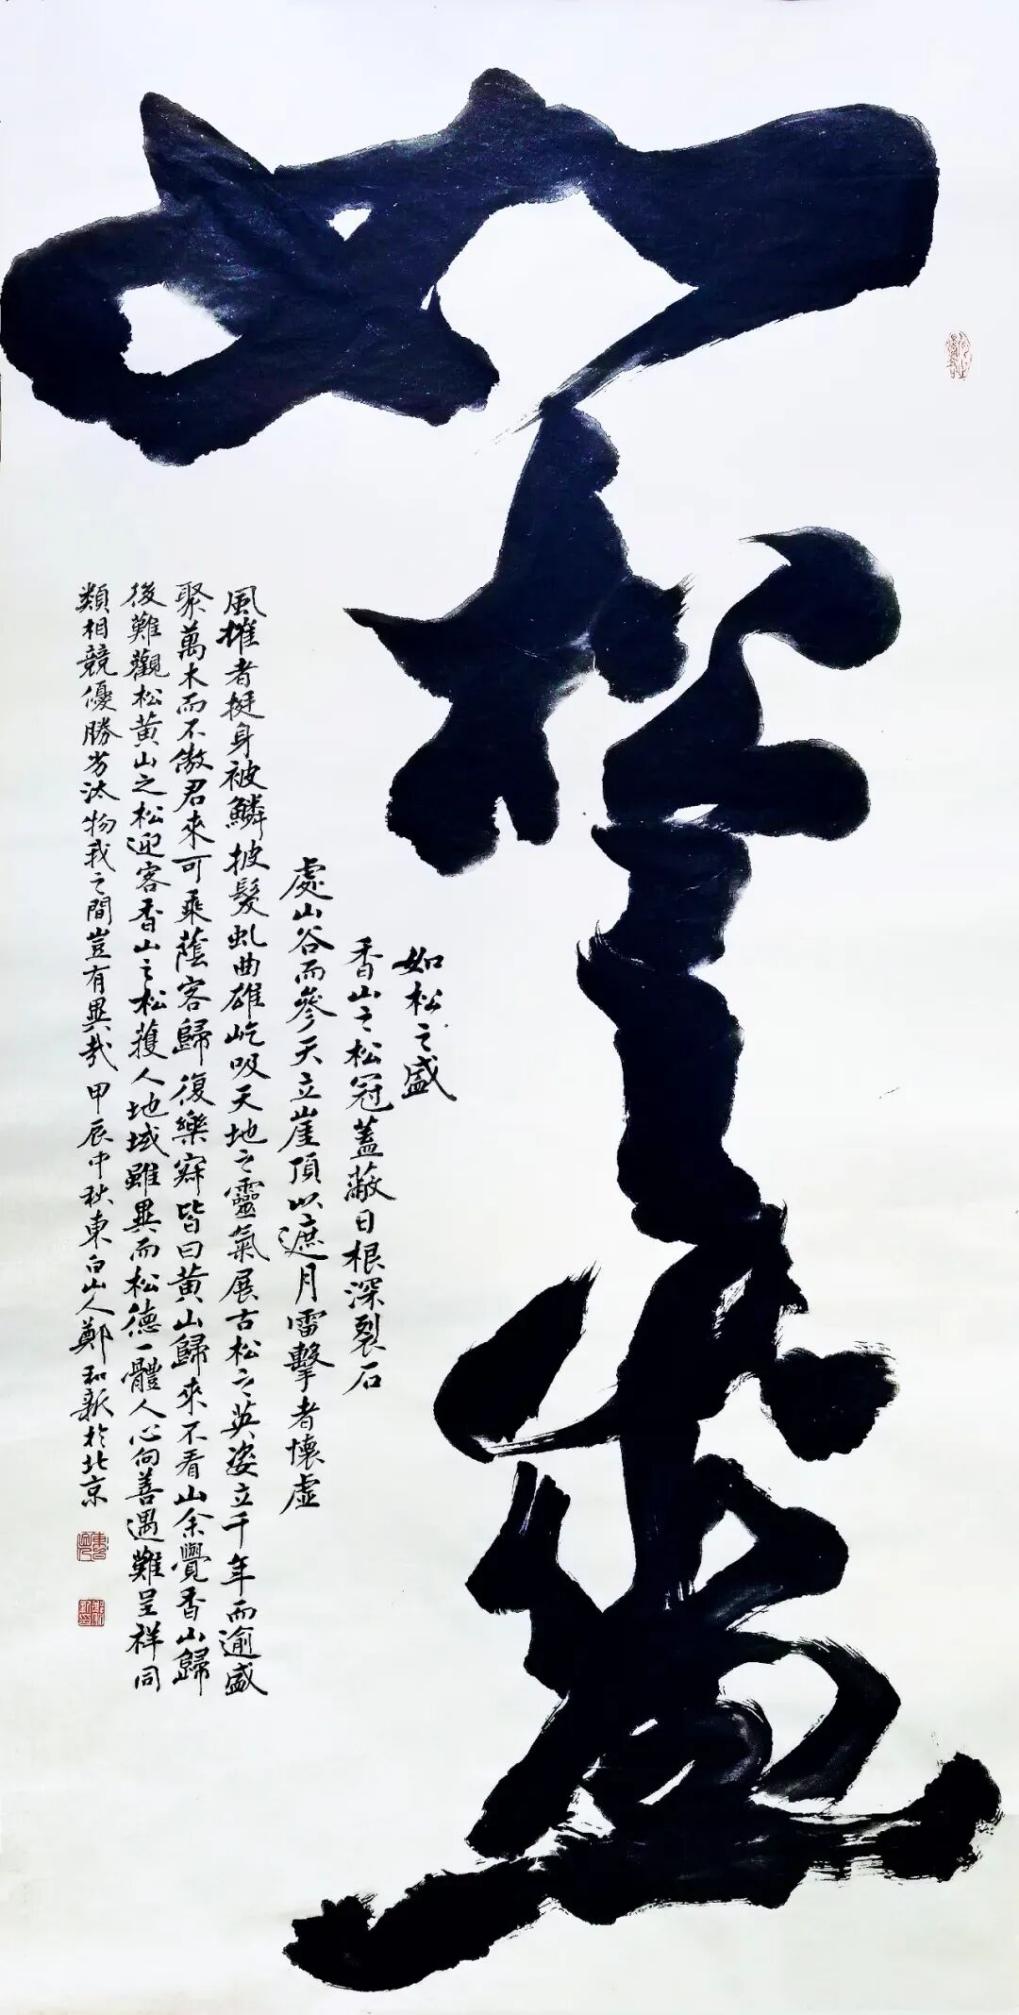 如松之盛
如松之盛
香山之松冠蓋蔽日根深裂石
處山谷而參天立崖頂以遮月雷擊者懷虛
風摧者挺身被鱗披髮虬曲雄屹吸天地之靈氣展古松之英姿立千年而逾盛
聚萬木而不傲君來可乘蔭客歸復樂寐皆曰黃山歸來不看山余覺香山歸
後難觀松黃山之松迎客香山之松護人地域雖異而松德一體人心向善遇難呈祥同
類相競優勝劣汰物我之間豈有異哉甲辰中秋東白山人鄭和新於北京